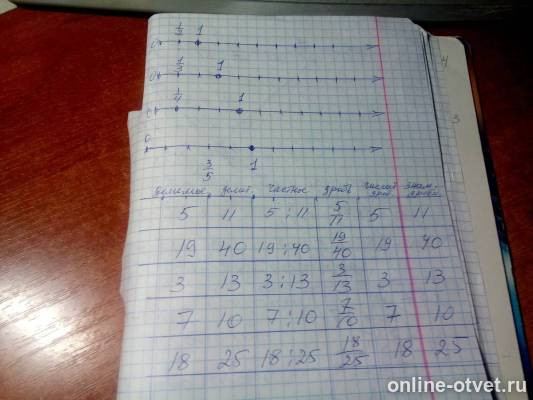 0 1/3 1
0 1/3 1
0 1/4 1
0
3/5 1
Делимое Делит. Частное Дробь Числит. дроби Знам. дроби
5 11 5:11 5/11 5 11
19 40 19:40 19/40 19 40
3 13 3:13 3/13 3 13
7 10 7:10 7/10 7 10
18 25 18:25 18/25 18 25
online-otvet.ru